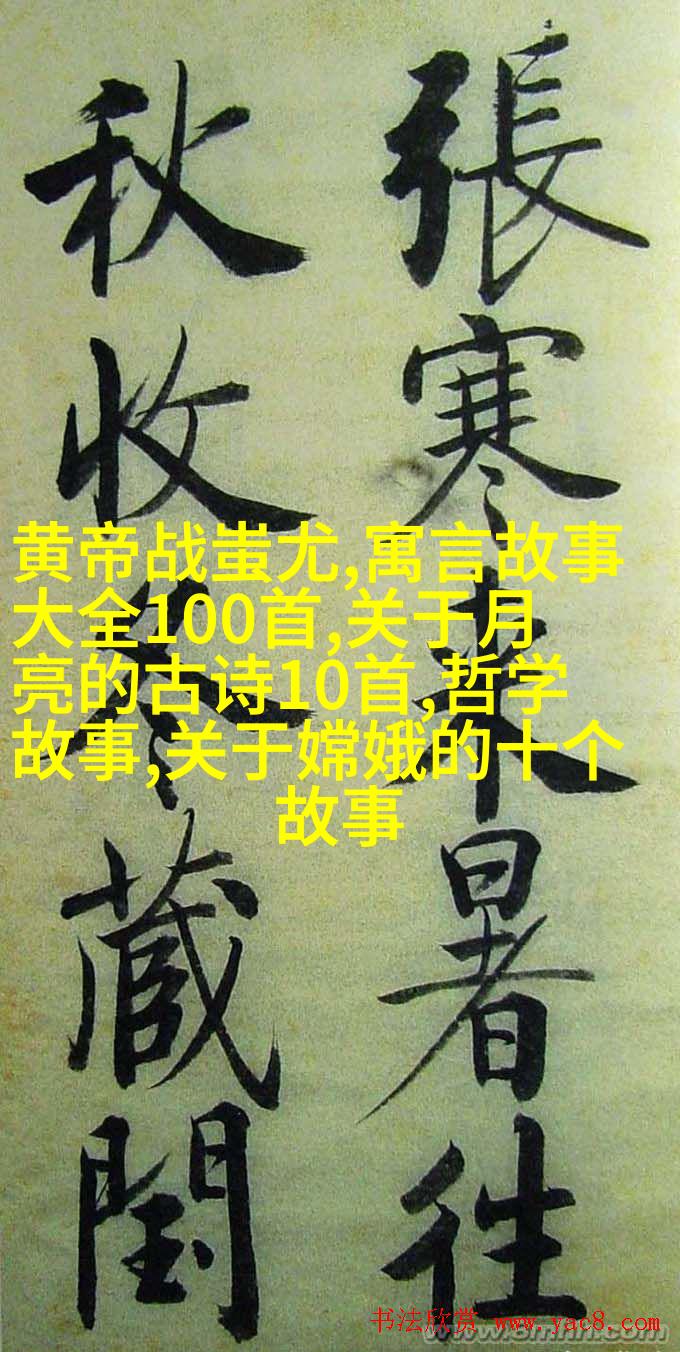 張寒来暑往
秋收冬藏閏
黄帝战蚩尤,寓言故事
大全100首,关于月
亮的古诗10首,哲学
故事,关于嫦娥的十个
故事
书法欣赏 www.yac8.com